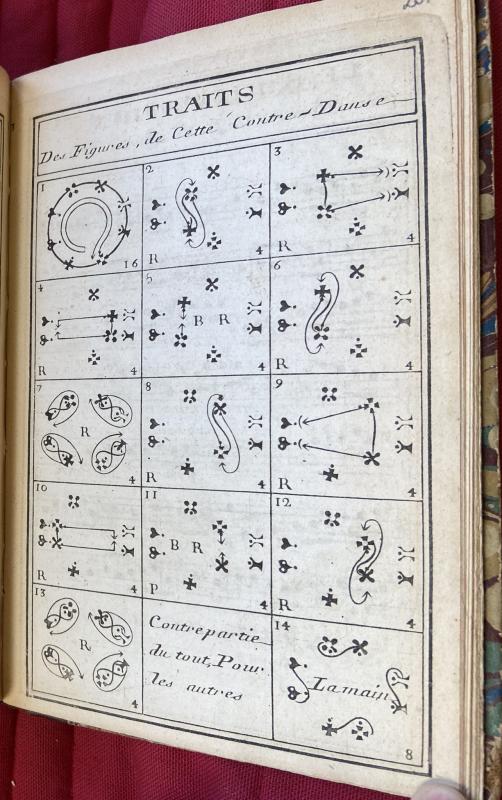 TRAITS
Des Figures, de Cette Contre-Danse
1
16
2
R 4
3
R 4
4
R 4
5
B R
4
6
R 4
7
R
4
8
R 4
9
R 4
10
R 4
11
B R
P 4
12
R 4
13
R
4
Contrepartie
du tout, Pour
les autres
14
La main
8